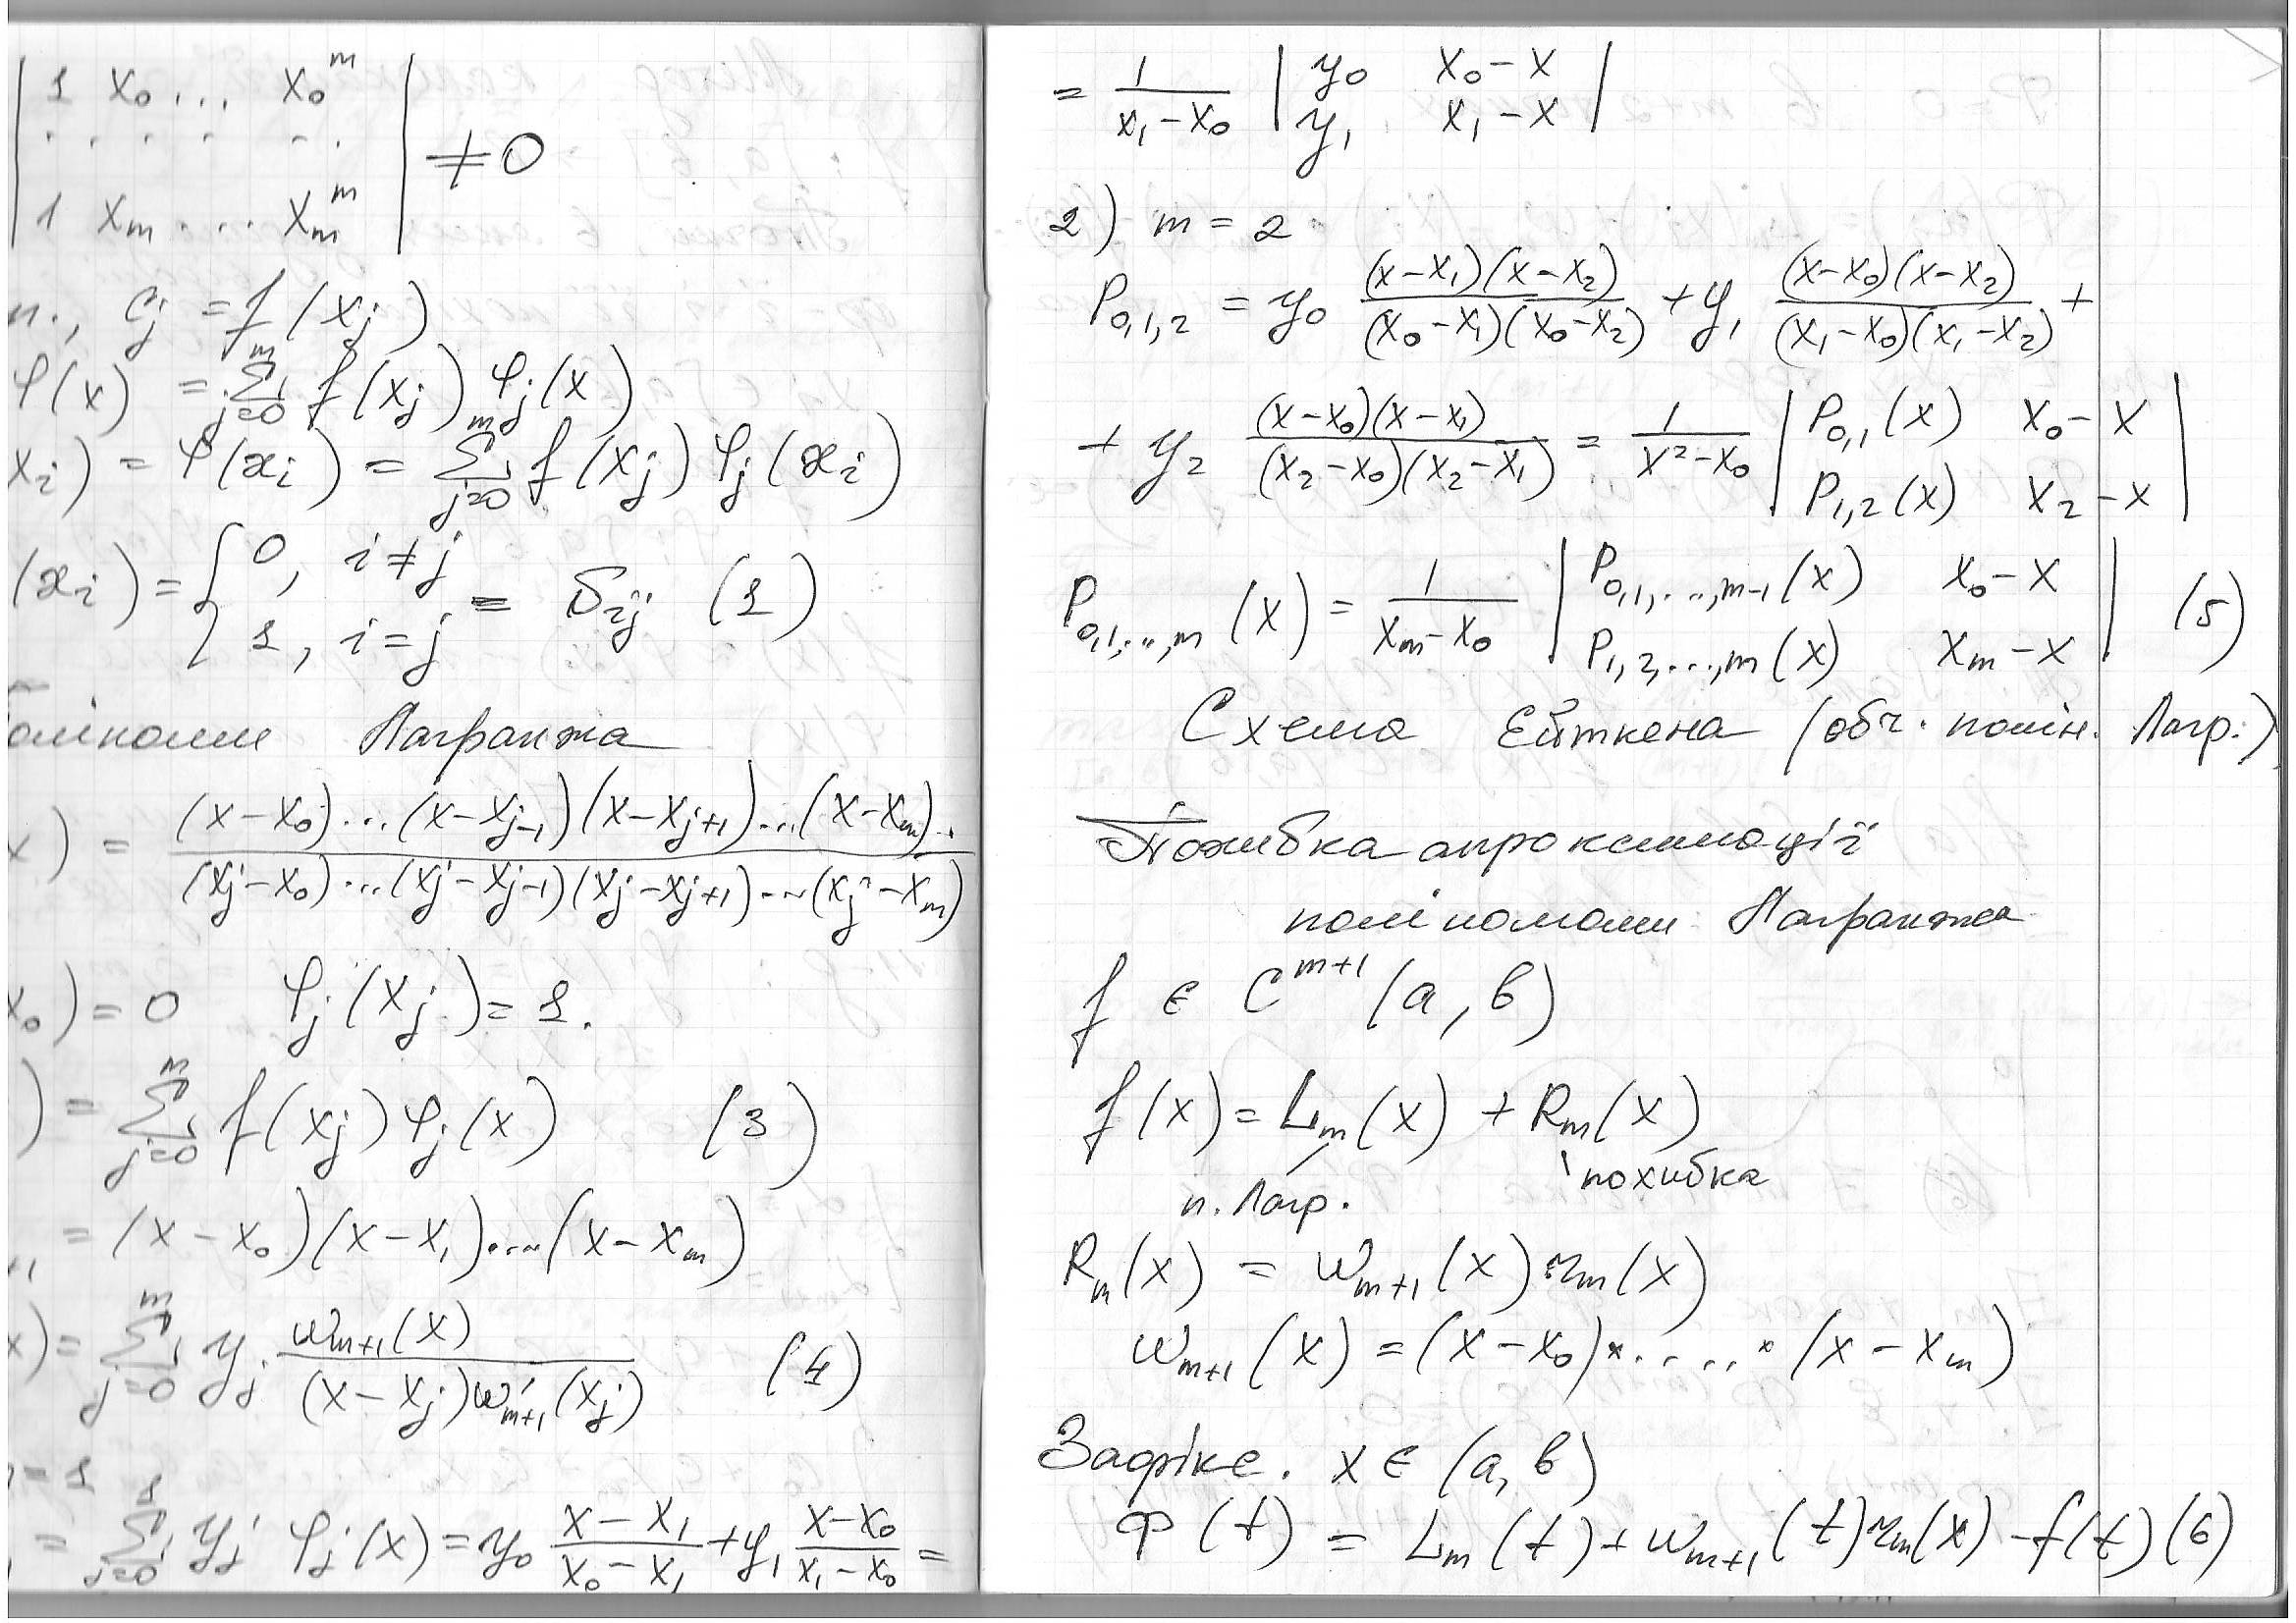 | 1 x₀ ... x₀ᵐ |
| . . . . . . | ≠ 0
| 1 xₘ ... xₘᵐ |
п., cⱼ = f(xⱼ)
φ(x) = Σⱼ₌₀ᵐ f(xⱼ) φⱼ(x)
xᵢ) = φ(xᵢ) = Σⱼ₌₀ᵐ f(xⱼ) φⱼ(xᵢ)
(xᵢ) = { 0, i ≠ j
{ 1, i = j = δᵢⱼ (1)
оліноми Лагранжа
x) = (x-x₀)...(x-xⱼ₋₁)(x-xⱼ₊₁)...(x-xₘ) / (xⱼ-x₀)...(xⱼ-xⱼ₋₁)(xⱼ-xⱼ₊₁)...(xⱼ-xₘ)
x₀) = 0 φⱼ(xⱼ) = 1.
) = Σⱼ₌₀ᵐ f(xⱼ) φⱼ(x) (3)
= (x-x₀)(x-x₁)...(x-xₘ)
x) = Σⱼ₌₀ᵐ yⱼ ωₘ₊₁(x) / (x-xⱼ)ω'ₘ₊₁(xⱼ) (4)
= 1
= Σⱼ₌₀¹ yⱼ φⱼ(x) = y₀ (x-x₁)/(x₀-x₁) + y₁ (x-x₀)/(x₁-x₀) =
= 1/(x₁-x₀) | y₀ x₀-x |
| y₁ x₁-x |
2) m = 2
P₀,₁,₂ = y₀ (x-x₁)(x-x₂)/(x₀-x₁)(x₀-x₂) + y₁ (x-x₀)(x-x₂)/(x₁-x₀)(x₁-x₂) +
+ y₂ (x-x₀)(x-x₁)/(x₂-x₀)(x₂-x₁) = 1/(x²-x₀) | P₀,₁(x) x₀-x |
| P₁,₂(x) x₂-x |
P₀,₁,...,ₘ(x) = 1/(xₘ-x₀) | P₀,₁,...,ₘ₋₁(x) x₀-x | (5)
| P₁,₂,...,ₘ(x) xₘ-x |
Схема Ейткена (обч. полін. Лагр.)
Похибка апроксимації
поліномами Лагранжа
f ∈ Cᵐ⁺¹(a, b)
f(x) = Lₘ(x) + Rₘ(x)
п. Лагр. похибка
Rₘ(x) = ωₘ₊₁(x) rₘ(x)
ωₘ₊₁(x) = (x-x₀) · ..... · (x-xₘ)
Зафіксе. x ∈ (a, b)
Φ(t) = Lₘ(t) + ωₘ₊₁(t) rₘ(x) - f(t) (6)